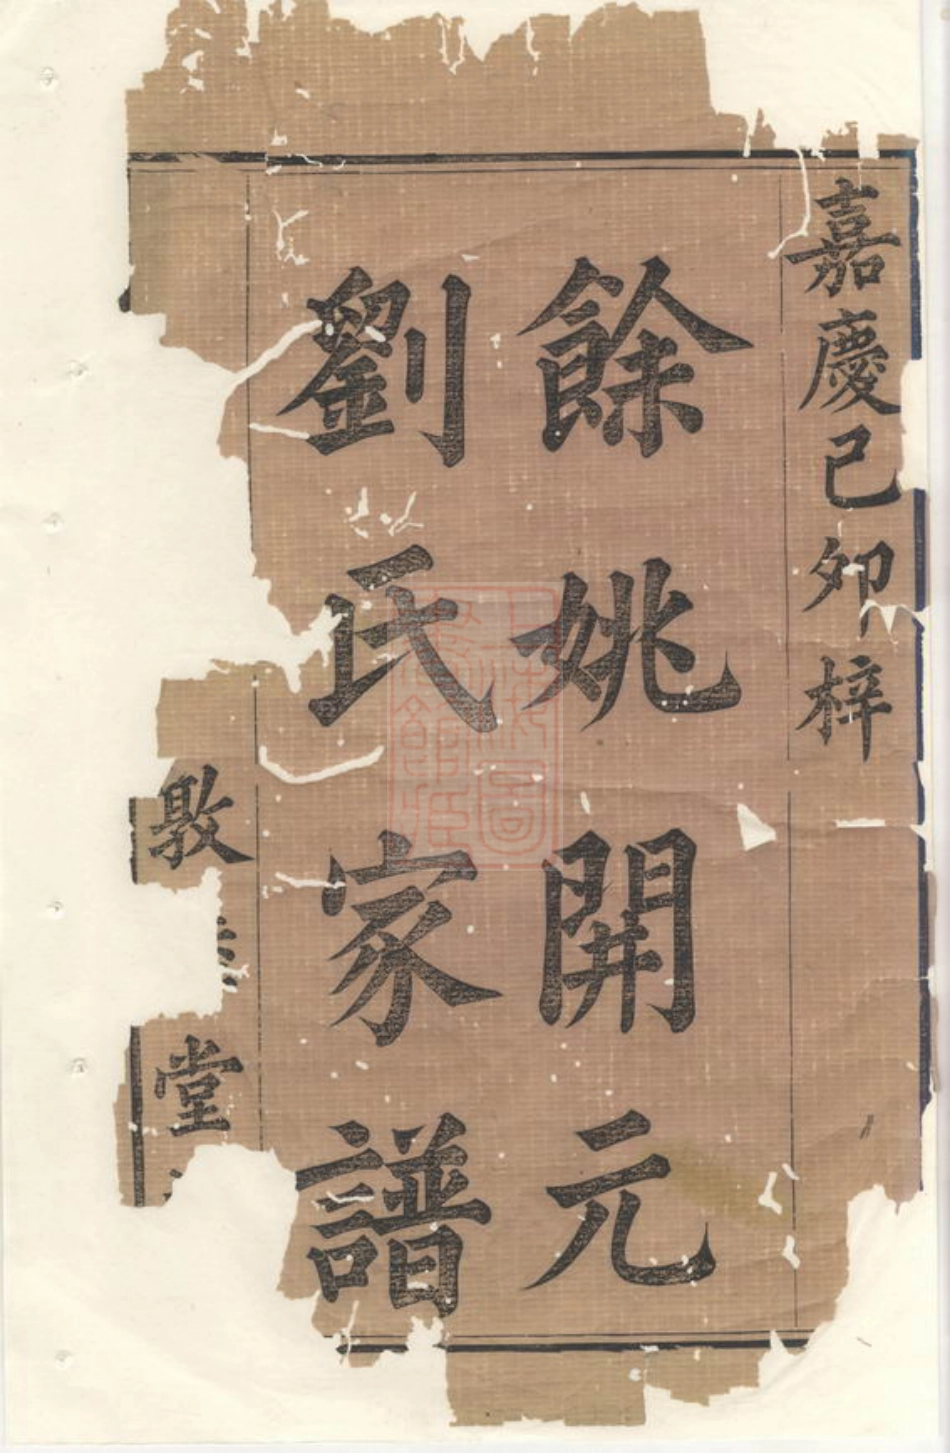 嘉慶己卯梓
餘姚開元
劉氏家譜
敦
堂